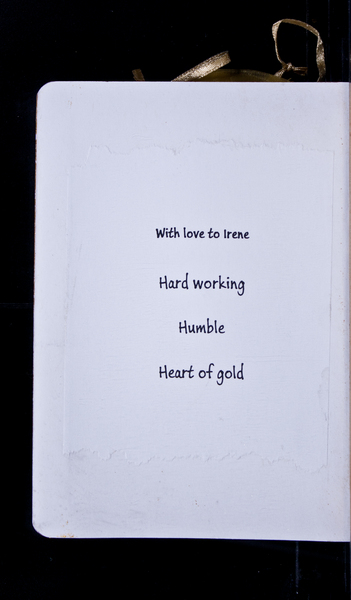 With love to Irene
Hard working
Humble
Heart of gold